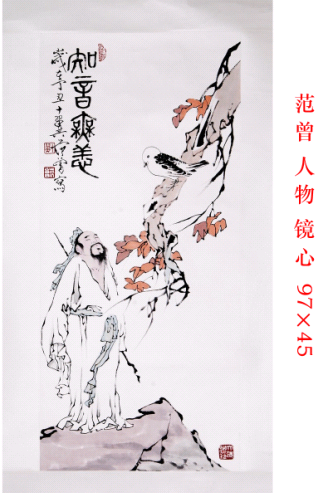 知音無恙
歲在辛丑十翼范曾寫
范曾 人物 镜心 97×45